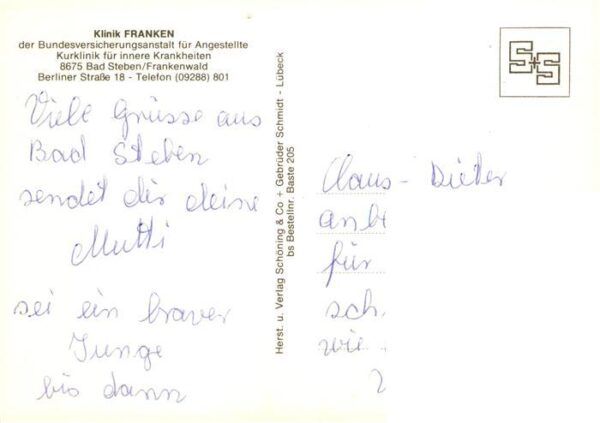 Klinik FRANKEN
der Bundesversicherungsanstalt für Angestellte
Kurklinik für innere Krankheiten
8675 Bad Steben/Frankenwald
Berliner Straße 18 - Telefon (09288) 801
Viele Grüsse aus
Bad Steben
sendet dir deine
Mutti
sei ein braver
Junge
bis dann
Herst. u. Verlag Schöning & Co + Gebrüder Schmidt - Lübeck
bs Bestellnr. Baste 205
S+S
Claus - Dieter
für
sch.
wie